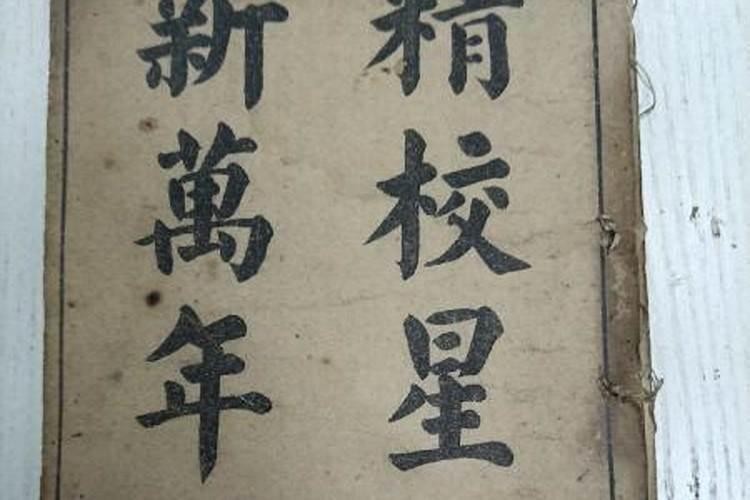 精校星
新萬年